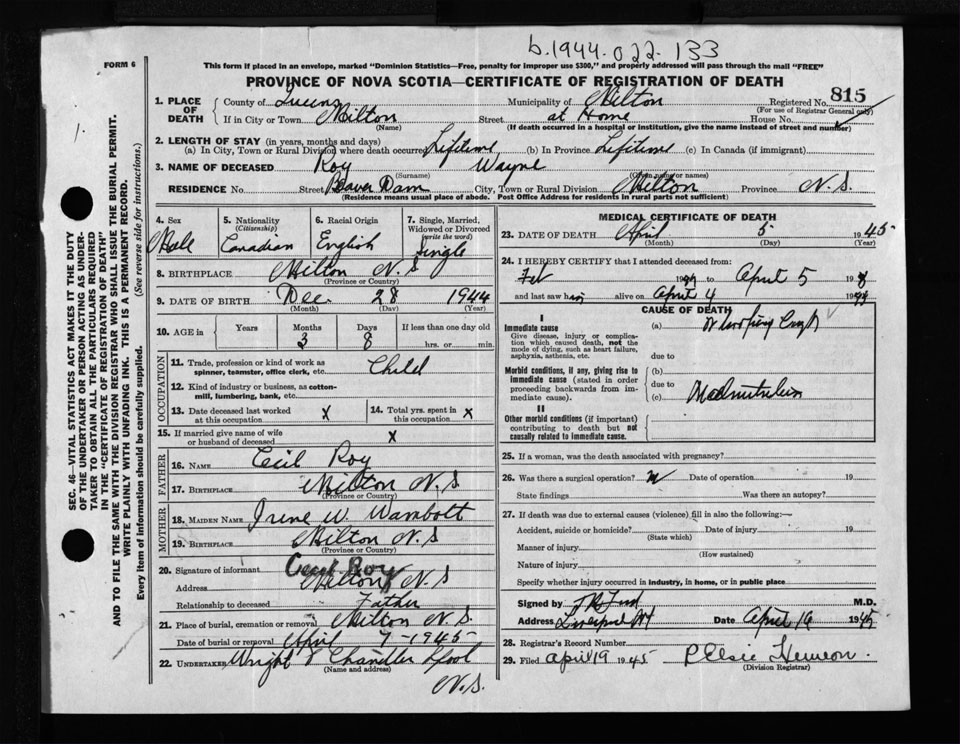 b.1944-022-133
FORM 6
This form if placed in an envelope, marked "Dominion Statistics—Free, penalty for improper use $300," and properly addressed will pass through the mail "FREE"
PROVINCE OF NOVA SCOTIA—CERTIFICATE OF REGISTRATION OF DEATH
1. PLACE OF DEATH County of Queens Municipality of Milton Registered No. 815
(For use of Registrar General only)
If in City or Town Milton Street at Home House No.
(Name) (If death occurred in a hospital or institution, give the name instead of street and number)
2. LENGTH OF STAY (in years, months and days)
(a) In City, Town or Rural Division where death occurred Lifetime (b) In Province Lifetime (c) In Canada (if immigrant)
3. NAME OF DECEASED Roy Wayne
(Surname) (Given name or names)
RESIDENCE No. Street Beaver Dam City, Town or Rural Division Milton Province N.S.
(Residence means usual place of abode. Post Office Address for residents in rural parts not sufficient)
4. Sex 5. Nationality 6. Racial Origin 7. Single, Married, Widowed or Divorced
(Citizenship) (write the word)
Male Canadian English Single
8. BIRTHPLACE Milton N.S
(Province or Country)
9. DATE OF BIRTH Dec 28 1944
(Month) (Day) (Year)
10. AGE in Years Months Days If less than one day old
3 8 hrs. or min.
OCCUPATION
11. Trade, profession or kind of work as spinner, teamster, office clerk, etc. Child
12. Kind of industry or business, as cotton-mill, lumbering, bank, etc.
13. Date deceased last worked at this occupation X 14. Total yrs. spent in this occupation X
15. If married give name of wife or husband of deceased X
FATHER
16. NAME Cecil Roy
17. BIRTHPLACE Milton N.S.
(Province or Country)
MOTHER
18. MAIDEN NAME Irene W. Wambolt
19. BIRTHPLACE Milton N.S
(Province or Country)
20. Signature of informant Cecil Roy
Address Milton N.S
Relationship to deceased Father
21. Place of burial, cremation or removal Milton N.S.
Date of burial or removal April 7-1945
22. UNDERTAKER Wright & Chandler Lpool
(Name and address)
N.S.
MEDICAL CERTIFICATE OF DEATH
23. DATE OF DEATH April 5 1945
(Month) (Day) (Year)
24. I HEREBY CERTIFY that I attended deceased from
Feb 19 to April 5 19
and last saw him alive on April 4 19
CAUSE OF DEATH
I
Immediate cause (a) Whooping Cough
Give disease, injury or complication which caused death, not the mode of dying, such as heart failure, asphyxia, asthenia, etc.
due to
Morbid conditions, if any, giving rise to immediate cause (stated in order proceeding backwards from immediate cause).
(b)
due to
(c) Malnutrition
II
Other morbid conditions (if important) contributing to death but not causally related to immediate cause.
25. If a woman, was the death associated with pregnancy?
26. Was there a surgical operation? Date of operation 19
State findings Was there an autopsy?
27. If death was due to external causes (violence) fill in also the following:—
Accident, suicide or homicide? Date of injury 19
(State which)
Manner of injury
(How sustained)
Nature of injury
Specify whether injury occurred in industry, in home, or in public place
Signed by M.D.
Address Liverpool NS Date April 16 1945
28. Registrar's Record Number
29. Filed april 19 1945
(Division Registrar)
SEC. 46—VITAL STATISTICS ACT MAKES IT THE DUTY
OF THE UNDERTAKER OR PERSON ACTING AS UNDER-
TAKER TO OBTAIN ALL THE PARTICULARS REQUIRED
IN THE "CERTIFICATE OF REGISTRATION OF DEATH"
AND TO FILE THE SAME WITH THE DIVISION REGISTRAR WHO SHALL ISSUE THE BURIAL PERMIT.
WRITE PLAINLY WITH UNFADING INK. THIS IS A PERMANENT RECORD.
Every item of information should be carefully supplied. (See reverse side for instructions.)